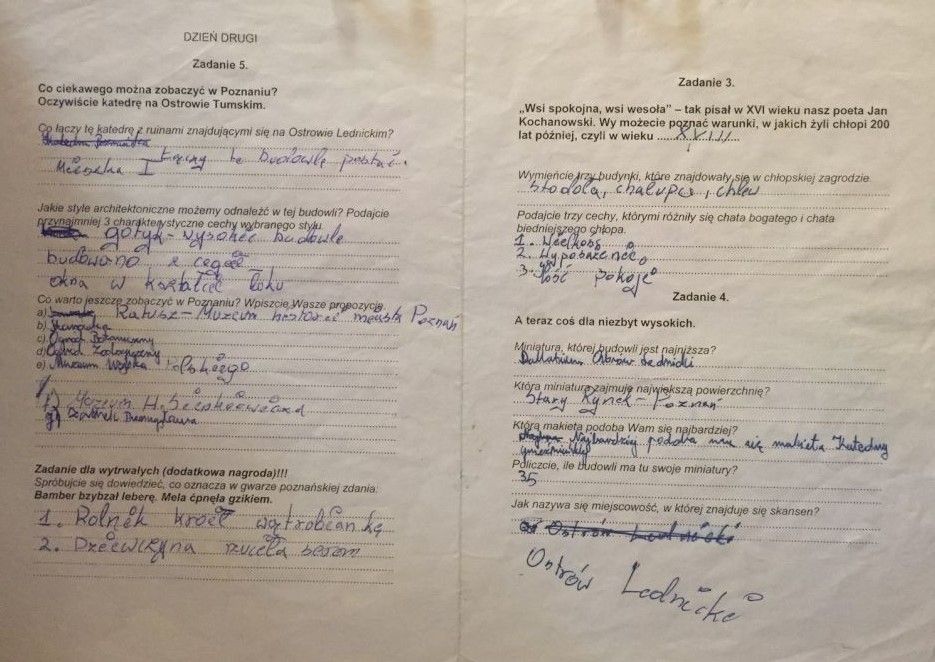 DZIEŃ DRUGI
Zadanie 5.
Co ciekawego można zobaczyć w Poznaniu?
Oczywiście katedrę na Ostrowie Tumskim.
Co łączy tę katedrę z ruinami znajdującymi się na Ostrowie Lednickim?
Łączy te budowlę postać
Mieszka I
Jakie style architektoniczne możemy odnaleźć w tej budowli? Podajcie
przynajmniej 3 charakterystyczne cechy wybranego stylu.
gotyk - wysokie budowle
budowano z cegieł
okna w kształcie łuku
Co warto jeszcze zobaczyć w Poznaniu? Wpiszcie Wasze propozycje.
a) Ratusz - Muzeum historii miasta Poznań
b)
c) Ogród Botaniczny
d) Ogród Zoologiczny
e) Muzeum Wojska Polskiego
f) Muzeum H. Sienkiewicza
g)
Zadanie dla wytrwałych (dodatkowa nagroda)!!!
Spróbujcie się dowiedzieć, co oznacza w gwarze poznańskiej zdania:
Bamber bzybzał leberę. Mela ćpnęła gzikiem.
1. Rolnik kroił wątrobiankę
2. Dziewczyna rzuciła serem
Zadanie 3.
„Wsi spokojna, wsi wesoła” – tak pisał w XVI wieku nasz poeta Jan
Kochanowski. Wy możecie poznać warunki, w jakich żyli chłopi 200
lat później, czyli w wieku XVIII
Wymieńcie trzy budynki, które znajdowały się w chłopskiej zagrodzie.
Stodoła, chałupa, chlew
Podajcie trzy cechy, którymi różniły się chata bogatego i chata
biedniejszego chłopa.
1. Wielkość
2. Wyposażenie
3. ilość pokoi
Zadanie 4.
A teraz coś dla niezbyt wysokich.
Miniatura, której budowli jest najniższa?
Palatium Ostrów Lednicki
Która miniatura zajmuje największą powierzchnię?
Stary Rynek - Poznań
Która makieta podoba Wam się najbardziej?
Najbardziej podoba nam się makieta Katedry
gnieźnińskiej
Policzcie, ile budowli ma tu swoje miniatury?
35
Jak nazywa się miejscowość, w której znajduje się skansen?
Ostrów Lednicki
Ostrów Lednicki